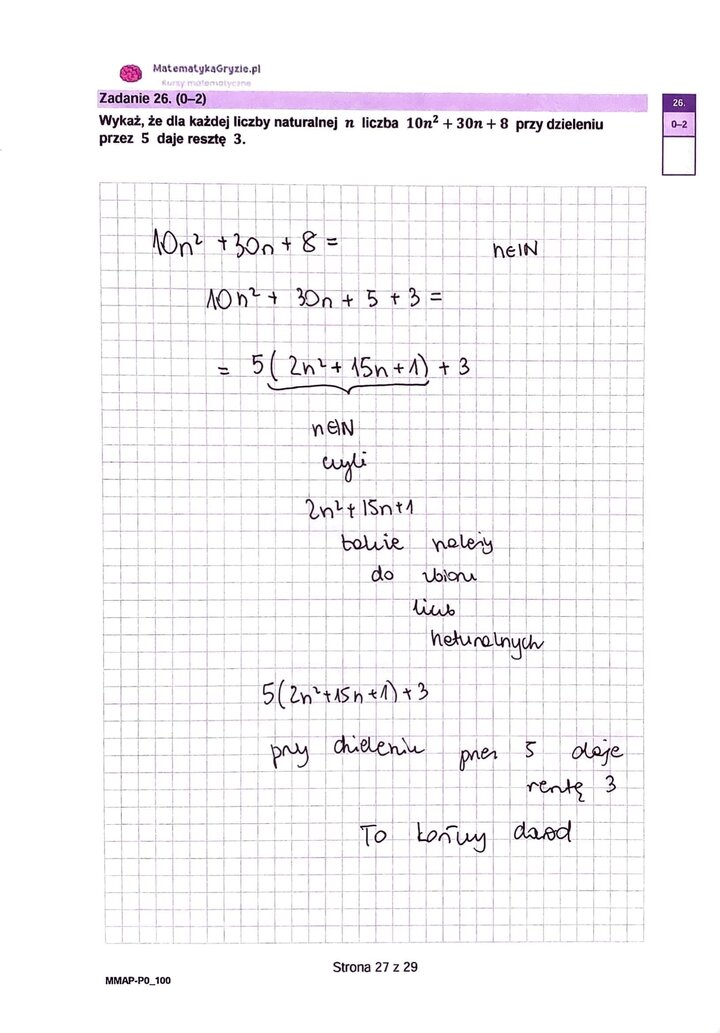 MatematykaGryzie.pl
Kursy matematyczne
Zadanie 26. (0–2)
Wykaż, że dla każdej liczby naturalnej n liczba 10n² + 30n + 8 przy dzieleniu
przez 5 daje resztę 3.
26.
0–2
10n² + 30n + 8 =
n∈ℕ
10n² + 30n + 5 + 3 =
= 5(2n² + 15n + 1) + 3
n∈ℕ
czyli
2n² + 15n + 1
także należy
do zbioru
liczb
naturalnych
5(2n² + 15n + 1) + 3
przy dzieleniu przez 5 daje
resztę 3
To kończy dowód
Strona 27 z 29
MMAP-P0_100